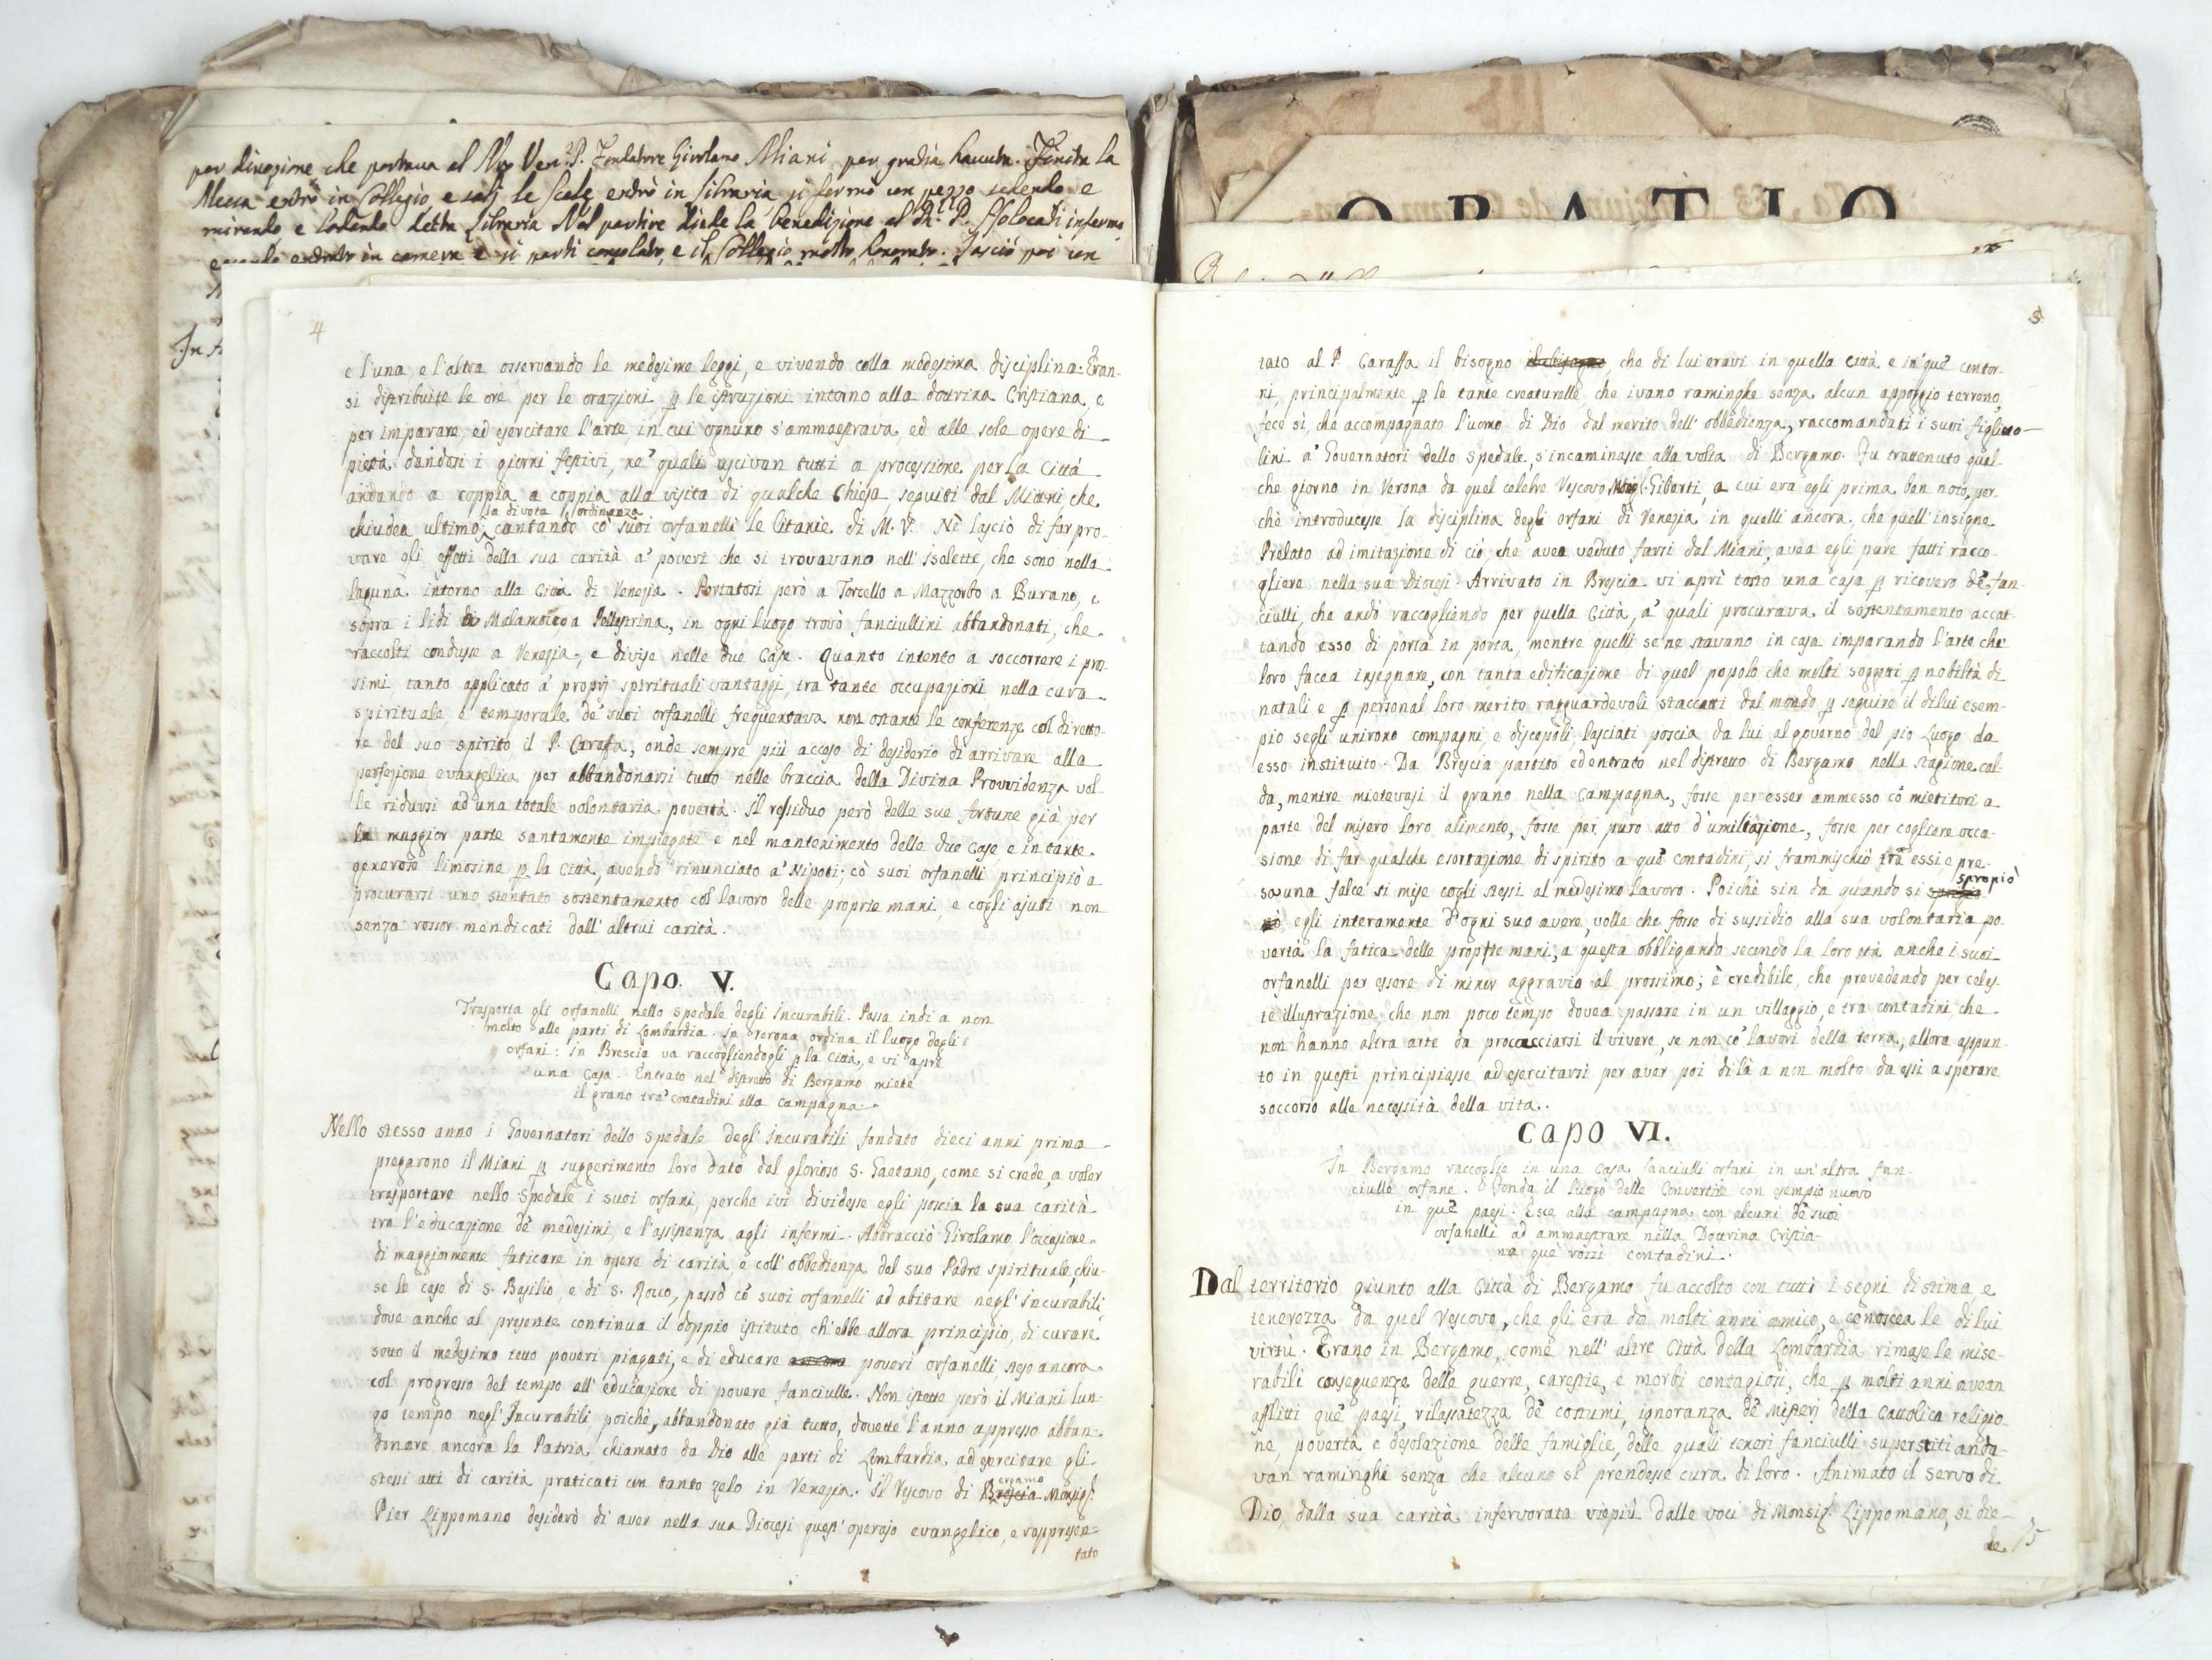 per divozione che portava al Nro Ven. P. Fondatore Girolamo Miani per gratia havuta. Finita la
Messa entrò in Collegio e salì le scale entrò in libraria si fermò un pezzo sedendo e
mirando e lodando detta libraria Nel partire diede la benedizione al P. Affolcati infermo
in camera e si partì consolato, e il Collegio molto honorato. Lasciò poi un
In
ORATIO
4
e l'una e l'altra osservando le medesime leggi, e vivendo colla medesima disciplina. Eran-
si distribuite le ore per le orazioni p le istruzioni intorno alla dottrina Cristiana e
per imparare, ed esercitare l'arte, in cui ognuno s'ammaestrava, ed alle sole opere di
pietà dandosi i giorni festivi, ne' quali uscivan tutti a processione per la Città
andando a coppia a coppia alla visita di qualche Chiesa seguiti dal Miani che
la divota ordinanza
chiudea ultimo, cantando co' suoi orfanelli le litanie di M. V. Nè lasciò di far pro-
vare gli effetti della sua carità a' poveri che si trovavano nell'Isolette, che sono nella
laguna intorno alla Città di Venezia. Portatosi però a Torcello a Mazzorbo a Burano, e
sopra i lidi di Malamocco a Pellestrina, in ogni luogo trovò fanciullini abbandonati, che
raccolti condusse a Venezia, e divise nelle due Case. Quanto intento a soccorrere i pros-
simi tanto applicato a' proprj spirituali vantaggi, tra tante occupazioni nella cura
spirituale, e temporale de' suoi orfanelli frequentava non ostante le conferenze col diretto-
re del suo spirito il P. Caraffa, onde sempre più acceso di desiderio di arrivare alla
perfezione evangelica per abbandonarsi tutto nelle braccia della Divina Provvidenza vol-
le ridursi ad una totale volontaria povertà. Il residuo però delle sue fortune già per
la maggior parte santamente impiegate e nel mantenimento delle due Case, e in tante
generose limosine p la Città, avendo rinunciato a' Nipoti; co' suoi orfanelli principiò a
procurarsi uno stentato sostentamento col lavoro delle proprie mani, e cogli ajuti non
senza rossor mendicati dall'altrui carità.
Capo. V.
Trasporta gli orfanelli nello spedale degli Incurabili. Passa indi a non
molto alle parti di Lombardia. In Verona ordina il luogo degli
orfani: in Brescia va raccogliendogli p la Città, e vi apre
una Casa. Entrato nel distretto di Bergamo miete
il grano tra' contadini alla campagna.
Nello stesso anno i Governatori dello spedale degl'Incurabili fondato dieci anni prima
pregarono il Miani p suggerimento loro dato dal glorioso S. Gaetano, come si crede, a voler
trasportare nello Spedale i suoi orfani, perche ivi dividesse egli poscia la sua carità
tra l'educazione de' medesimi, e l'assistenza agli infermi. Abbracciò Girolamo l'occasione
di maggiormente faticare in opere di carità, e coll'obbedienza del suo Padre spirituale, chiu-
se le case di S. Basilio, e di S. Rocco, passò co' suoi orfanelli ad abitare negl'Incurabili,
dove anche al presente continua il doppio istituto ch'ebbe allora principio, di curare
sotto il medesimo tetto poveri piagati, e di educare ancora poveri orfanelli, steso ancora
col progresso del tempo all'educazione di povere fanciulle. Non istette però il Miani lun-
go tempo negl'Incurabili poichè, abbandonato già tutto, dovette l'anno appresso abban-
donare ancora la Patria, chiamato da Dio alle parti di Lombardia, ad esercitare gli
stessi atti di carità praticati con tanto zelo in Venezia. Il Vescovo di Brescia ergamo Monsigr.
Pier Lippomano desiderò di aver nella sua Diocesi quest'operajo evangelico, e rappresen-
tato
5
tato al P. Caraffa il bisogno che di lui eravi in quella Città e in que' contor-
ni, principalmente p le tante creaturelle, che ivano raminghe senza alcun appoggio terreno,
fece sì, che accompagnato l'uomo di Dio dal merito dell'obbedienza, raccomandati i suoi figliuo-
lini a' Governatori dello spedale, s'incaminasse alla volta di Bergamo. Fu trattenuto qual-
che giorno in Verona da quel celebre Vescovo Monsigr. Giberti, a cui era egli prima ben noto, per-
chè introducesse la disciplina degli orfani di Venezia in quelli ancora, che quell'insigne
Prelato ad imitazione di ciò, che avea veduto farsi dal Miani, avea egli pure fatti racco-
gliere nella sua Diocesi. Arrivato in Brescia vi aprì tosto una casa p ricovero de' fan-
ciulli, che andò raccogliendo per quella Città, a' quali procurava il sostentamento accat-
tando esso di porta in porta, mentre quelli se ne stavano in casa imparando l'arte che
loro facea insegnare, con tanta edificazione di quel popolo che molti soggetti p nobiltà di
natali e p personal loro merito ragguardevoli staccatti dal mondo p seguire il dilui esem-
pio segli unirono compagni e discepoli lasciati poscia da lui al governo del pio Luogo da
esso instituito. Da Brescia partito ed entrato nel distretto di Bergamo nella stagione cal-
da, mentre mietevasi il grano nella campagna, fosse per esser ammesso co' mietitori a
parte del misero loro alimento, fosse per puro atto d'umiliazione, fosse per cogliere occa-
sione di far qualche esortazione di spirito a que' contadini, si frammischiò tra essi, e pre-
sa una falce si mise cogli stessi al medesimo lavoro. Poichè sin da quando si spropiò
egli interamente d'ogni suo avere, volle che fosse di sussidio alla sua volontaria po-
vertà la fatica delle proprie mani, a questa obbligando secondo la loro età anche i suoi
orfanelli per essere di minor aggravio al prossimo; è credibile, che prevedendo per celes-
te illustrazione, che non poco tempo dovea passare in un villaggio, e tra contadini, che
non hanno altra arte da proccacciarsi il vivere, se non co' lavori della terra, allora appun-
to in questi principiasse ad esercitarsi per aver poi di là a non molto da essi a sperare
soccorso alle necessità della vita.
Capo VI.
In Bergamo raccoglie in una Casa fanciulli orfani in un'altra fan-
ciulle orfane. Fonda il luogo delle Convertite con esempio nuovo
in que' paesi. Esce alla campagna con alcuni de' suoi
orfanelli ad ammaestrare nella Dottrina Cristia-
na que' rozzi contadini.
Dal territorio giunto alla Città di Bergamo fu accolto con tutti i segni di stima e
tenerezza da quel Vescovo, che gli era da molti anni amico, e conoscea le di lui
virtù. Erano in Bergamo, come nell'altre Città della Lombardia rimase le mise-
rabili conseguenze delle guerre, carestie, e morbi contagiosi, che p molti anni avean
afflitti que' paesi, rilassatezza de' costumi, ignoranza de' Misterj della Cattolica religio-
ne, povertà, e desolazione delle famiglie, delle quali teneri fanciulli superstiti anda-
van raminghi senza che alcuno si prendesse cura di loro. Animato il servo di
Dio, dalla sua carità, infervorata viepiù dalle voci di Monsigr. Lippomano, si die-
de